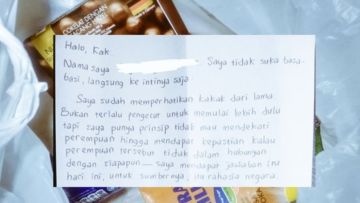 COKELAT DENGAN
Halo, Kak.
Nama saya
Saya tidak suka basa-
basi, langsung ke intinya saja.
Saya sudah memperhatikan kakak dari lama.
Bukan terlalu pengecut untuk memulai lebih dulu
tapi saya punya prinsip tidak mau mendekati
perempuan hingga mendapat kepastian kalau
perempuan tersebut tidak dalam hubungan
dengan siapapun — saya mendapat jawaban itu
hari ini, untuk sumbernya, itu rahasia negara.